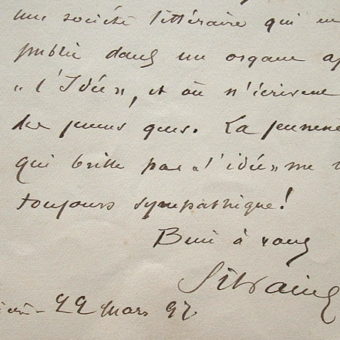 une société littéraire qui
public dans un organe
« l'Idée », et où n'écrivent
des jeunes gens. La jeunesse
qui brille par « l'idée » me
toujours sympathique !
Bien à vous
Silvain
22 mars 97